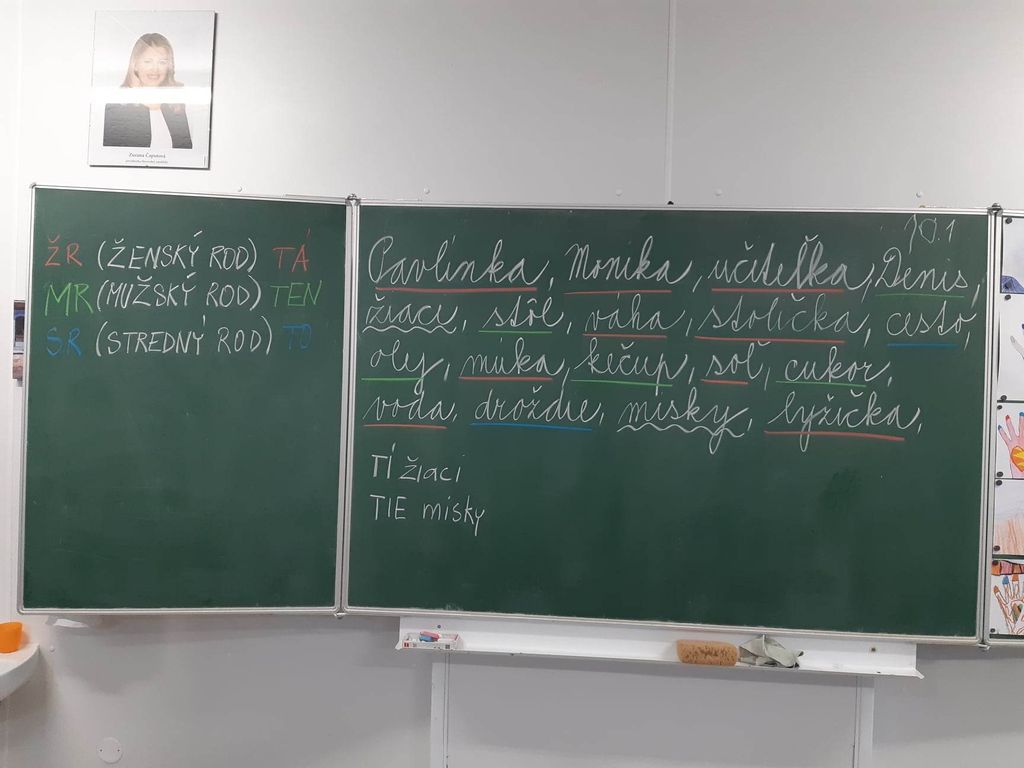 Zuzana Čaputová
prezidentka Slovenskej republiky
ŽR (ŽENSKÝ ROD) TÁ
MR (MUŽSKÝ ROD) TEN
SR (STREDNÝ ROD) TO
10.1
Pavlínka, Monika, učiteľka, Denis,
žiaci, stôl, váha, stolička, cesto,
olej, múka, kečup, soľ, cukor,
voda, droždie, misky, lyžička,
TÍ žiaci
TIE misky